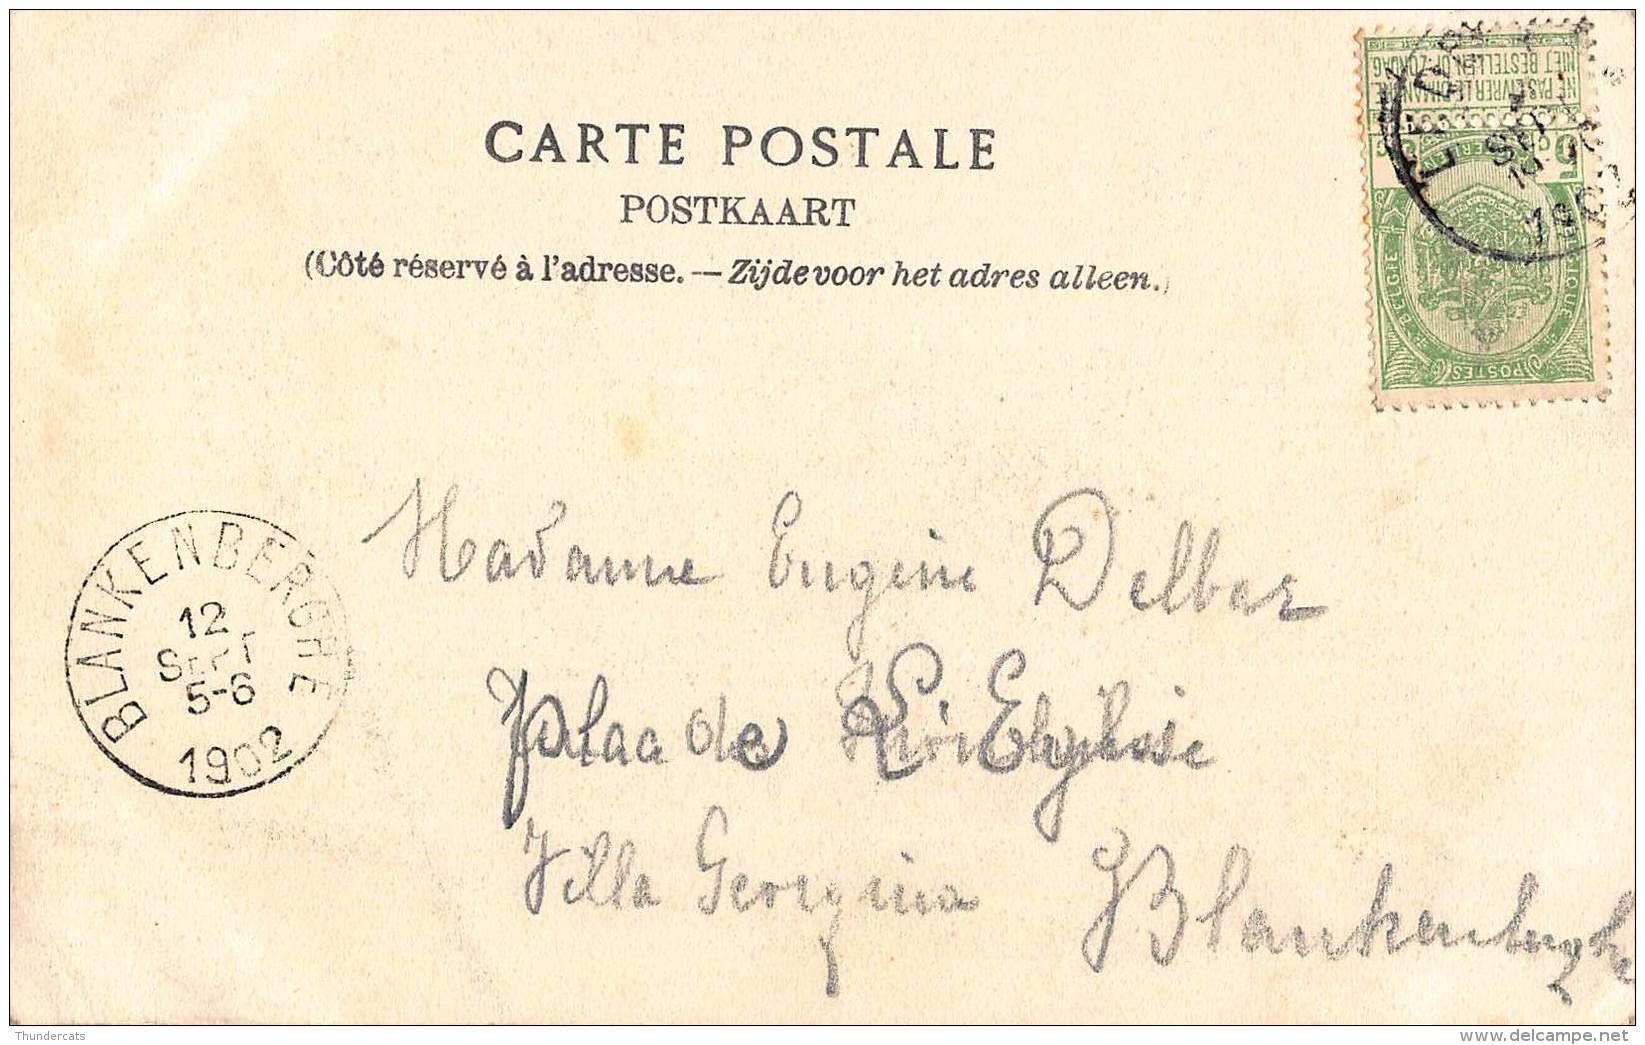 CARTE POSTALE
POSTKAART
(Côté réservé à l'adresse. — Zijde voor het adres alleen.)
NIET BESTELLEN OP ZONDAG
NE PAS LIVRER LE DIMANCHE
BELGIQUE
POSTES
BELGRE
BLANKENBERGHE
12
SEPT
5-6
1902
Madame Eugène Delbar
Place de
Villa Georgina Blankenberghe
Thundercats
www.delcampe.net